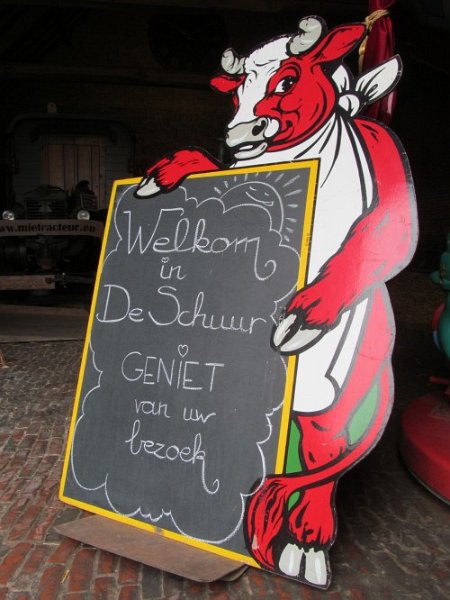 Welkom
in
De Schuur
GENIET
van uw
bezoek
www.mietracteur.eu